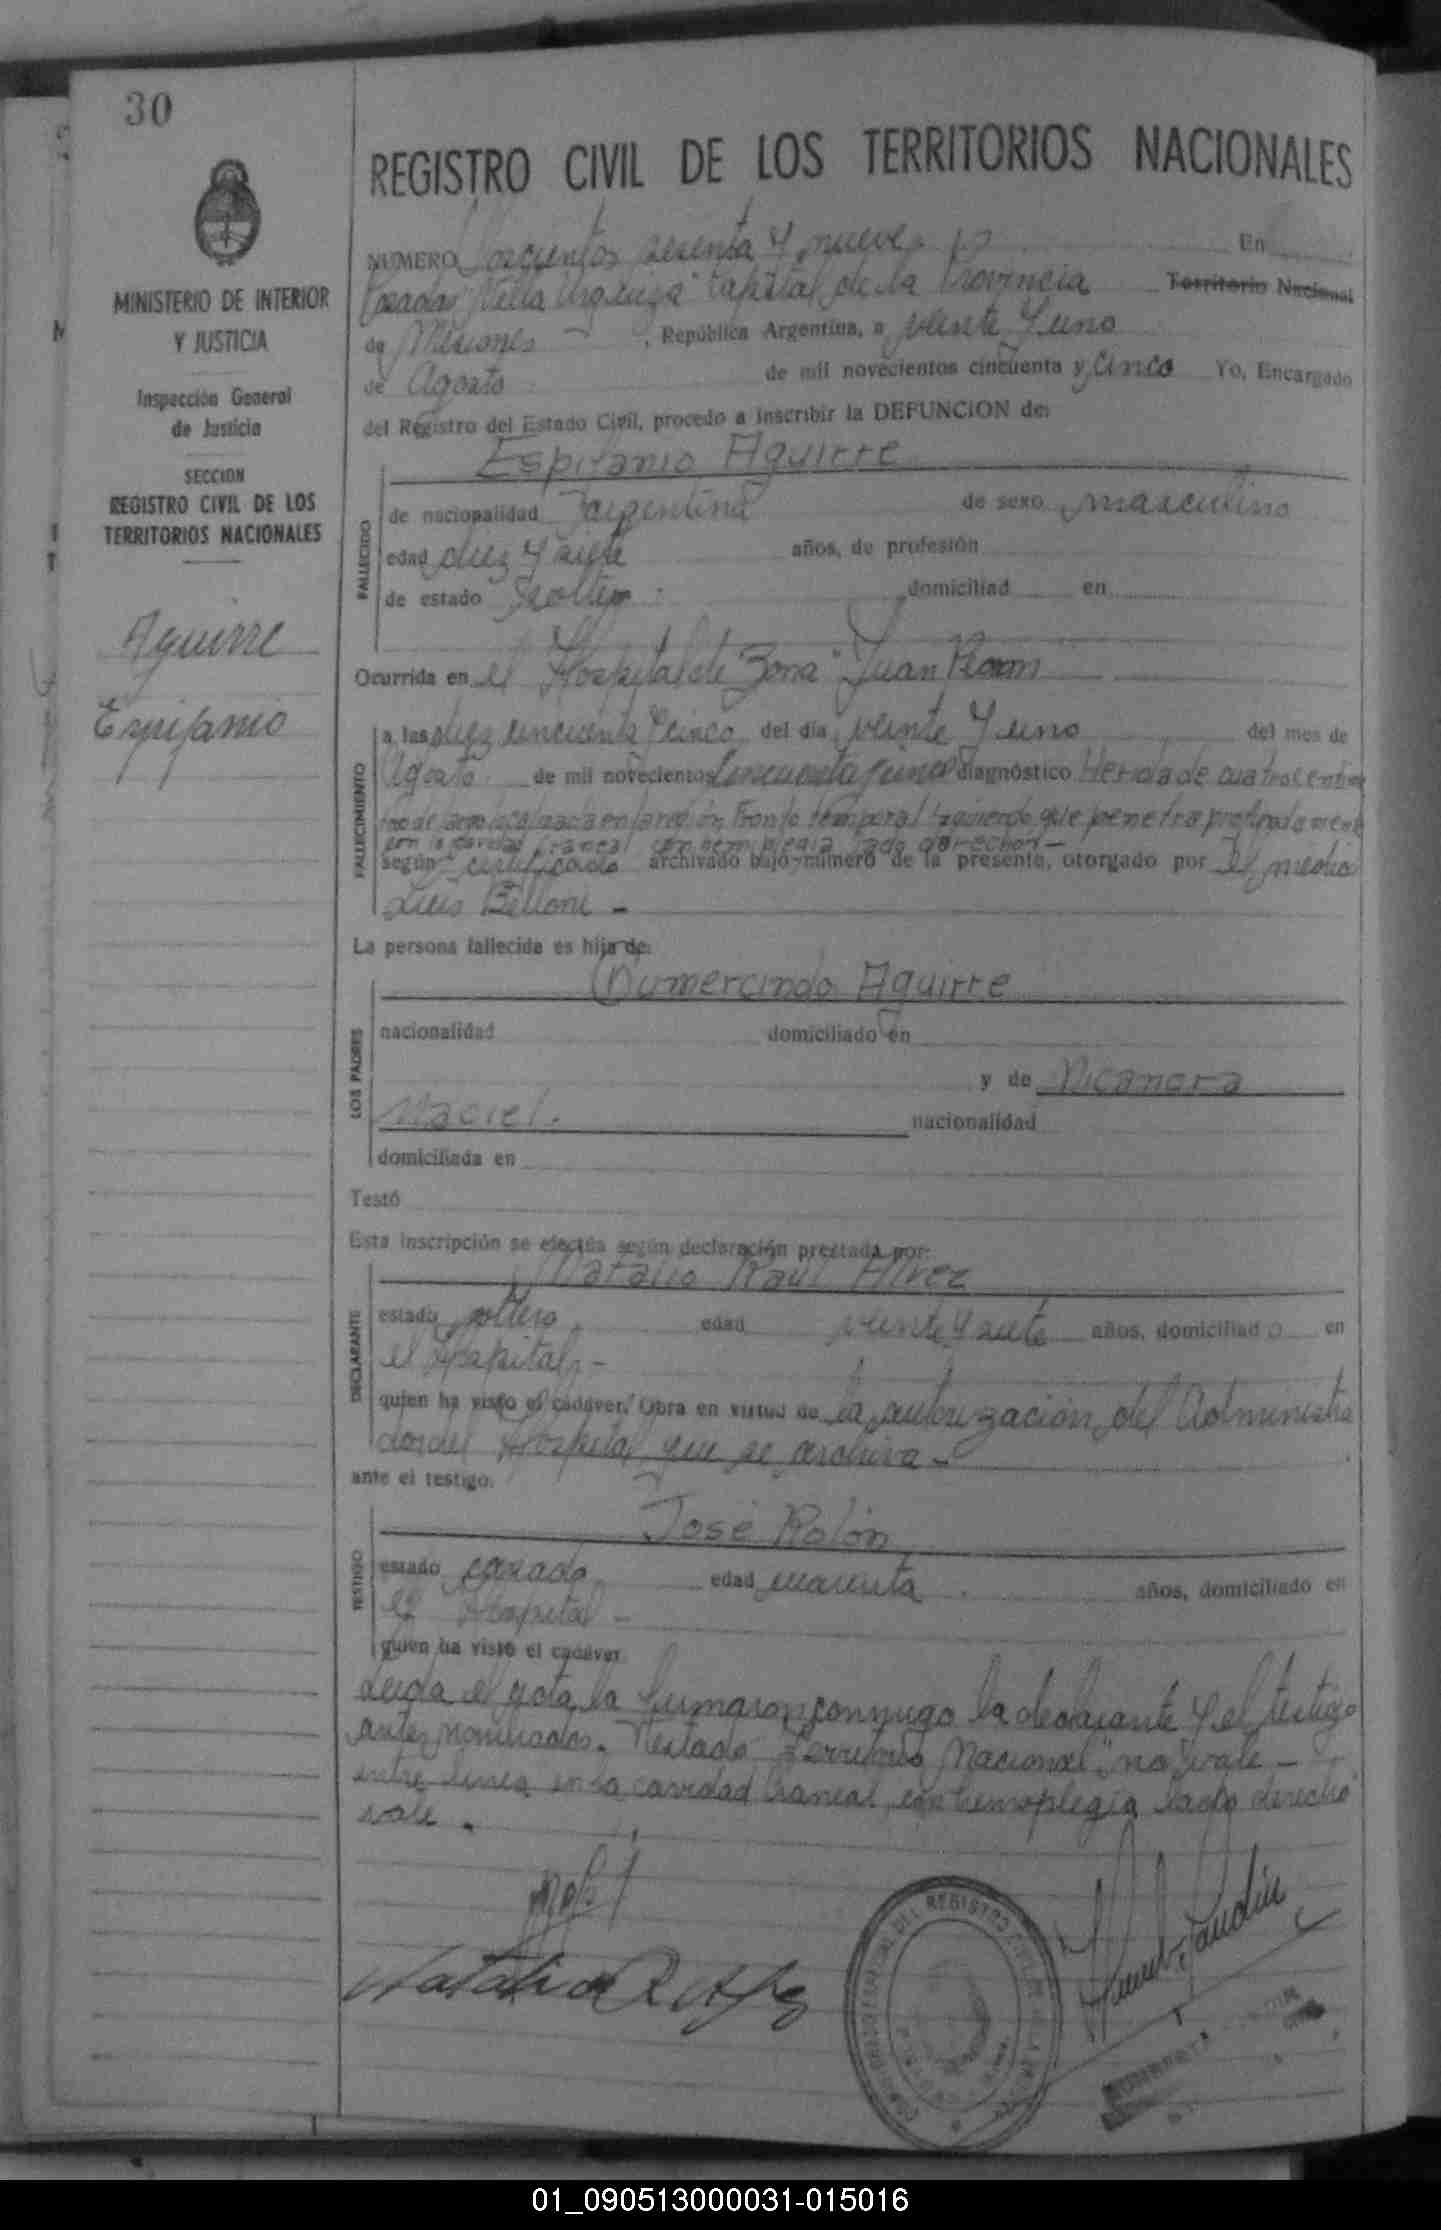 30
MINISTERIO DE INTERIOR
Y JUSTICIA
Inspección General
de Justicia
SECCION
REGISTRO CIVIL DE LOS
TERRITORIOS NACIONALES
Aguirre
Epifanio
REGISTRO CIVIL DE LOS TERRITORIOS NACIONALES
NUMERO sesenta y nueve En
Posadas Capital de la Provincia Territorio Nacional
de Misiones, República Argentina, a veinte y uno
de Agosto de mil novecientos cincuenta y cinco Yo, Encargado
del Registro del Estado Civil, procedo a inscribir la DEFUNCION de:
Espifanio Aguirre
FALLECIDO
de nacionalidad argentina de sexo masculino
edad diez y siete años, de profesión
de estado soltero domiciliad en
Ocurrida en el Hospital de Zona "Juan Peron"
FALLECIMIENTO
a las diez cincuenta y cinco del día veinte y uno del mes de
Agosto de mil novecientos cincuenta y cinco diagnóstico Herida de cuatro centime
tro de largo localizada en la región Fronto temporal izquierdo que penetra profundamente
en la cavidad craneal con hemiplegia lado derecho
según certificado archivado bajo número de la presente, otorgado por el médico
Luis Belloni -
La persona fallecida es hija de:
LOS PADRES
Gumercindo Aguirre
nacionalidad domiciliado en
y de Nicanora
Maciel. nacionalidad
domiciliada en
Testó
Esta inscripción se efectúa según declaración prestada por:
DECLARANTE
Natalio Raúl Alvez
estado soltero edad veinte y siete años, domiciliado en
el Hospital -
quien ha visto el cadáver. Obra en virtud de la autorización del Administra
dor del Hospital que se archiva -
ante el testigo.
TESTIGO
José Rolón
estado casado edad cuarenta años, domiciliado en
el Hospital -
quien ha visto el cadáver.
Leida el acta la firmaron conmigo la declarante y el testigo
antes nominados. Testado "Territorio Nacional" no vale -
entre linea en la cavidad craneal con hemoplegia lado derecho
vale.
Natalio R Alvez
01_090513000031-015016